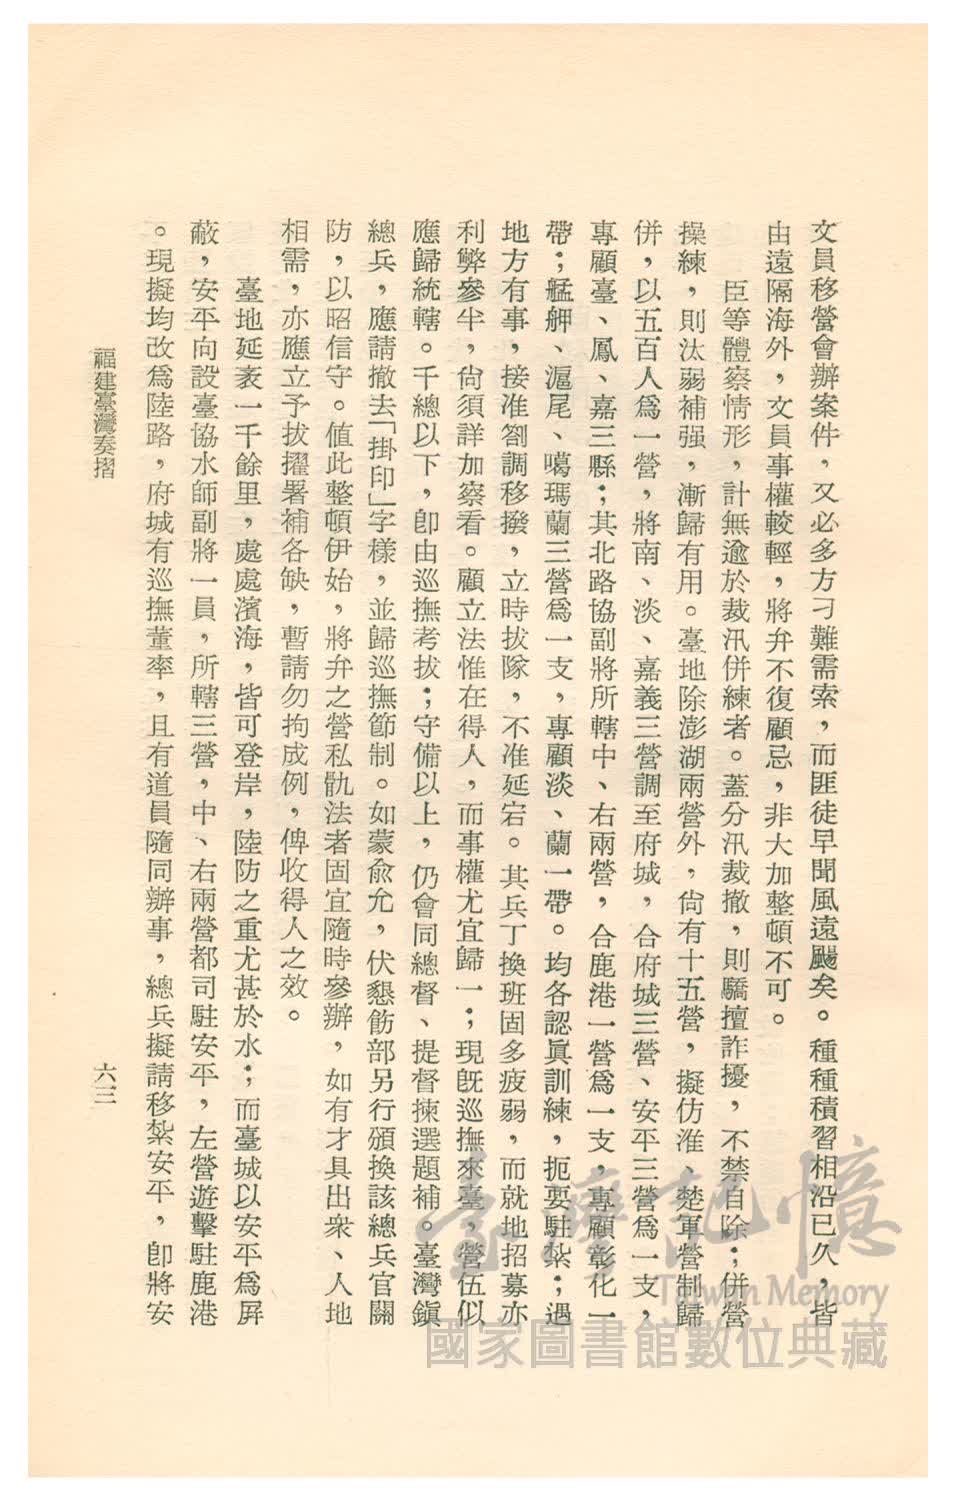 文員移營會辦案件，又必多方刁難需索，而匪徒早聞風遠颺矣。種種積習相沿已久，皆
由遠隔海外，文員事權較輕，將弁不復顧忌，非大加整頓不可。
臣等體察情形，計無逾於裁汛併練者。蓋分汛裁撤，則驕擅詐擾，不禁自除；併營
操練，則汰弱補强，漸歸有用。臺地除澎湖兩營外，尙有十五營，擬仿淮、楚軍營制歸
併，以五百人爲一營，將南、淡、嘉義三營調至府城，合府城三營、安平三營爲一支，
專顧臺、鳳、嘉三縣；其北路協副將所轄中、右兩營，合鹿港一營爲一支，專顧彰化一
帶；艋舺、滬尾、噶瑪蘭三營爲一支，專顧淡、蘭一帶。均各認眞訓練，扼要駐紮；遇
地方有事，接准劄調移撥，立時拔隊，不准延宕。其兵丁換班固多疲弱，而就地招募亦
利弊參半，尙須詳加察看。顧立法惟在得人，而事權尤宜歸一；現旣巡撫來臺，營伍似
應歸統轄。千總以下，卽由巡撫考拔；守備以上，仍會同總督、提督揀選題補。臺灣鎭
總兵，應請撤去「掛印」字樣，並歸巡撫節制。如蒙兪允，伏懇飭部另行頒換該總兵官關
防，以昭信守。值此整頓伊始，將弁之營私骫法者固宜隨時參辦，如有才具出衆、人地
相需，亦應立予拔擢署補各缺，暫請勿拘成例，俾收得人之效。
臺地延袤一千餘里，處處濱海，皆可登岸，陸防之重尤甚於水；而臺城以安平爲屏
蔽，安平向設臺協水師副將一員，所轄三營，中、右兩營都司駐安平，左營遊擊駐鹿港
。現擬均改爲陸路，府城有巡撫董率，且有道員隨同辦事，總兵擬請移紮安平，卽將安
福建臺灣奏摺
六三
臺灣記憶
Taiwan Memory
國家圖書館數位典藏